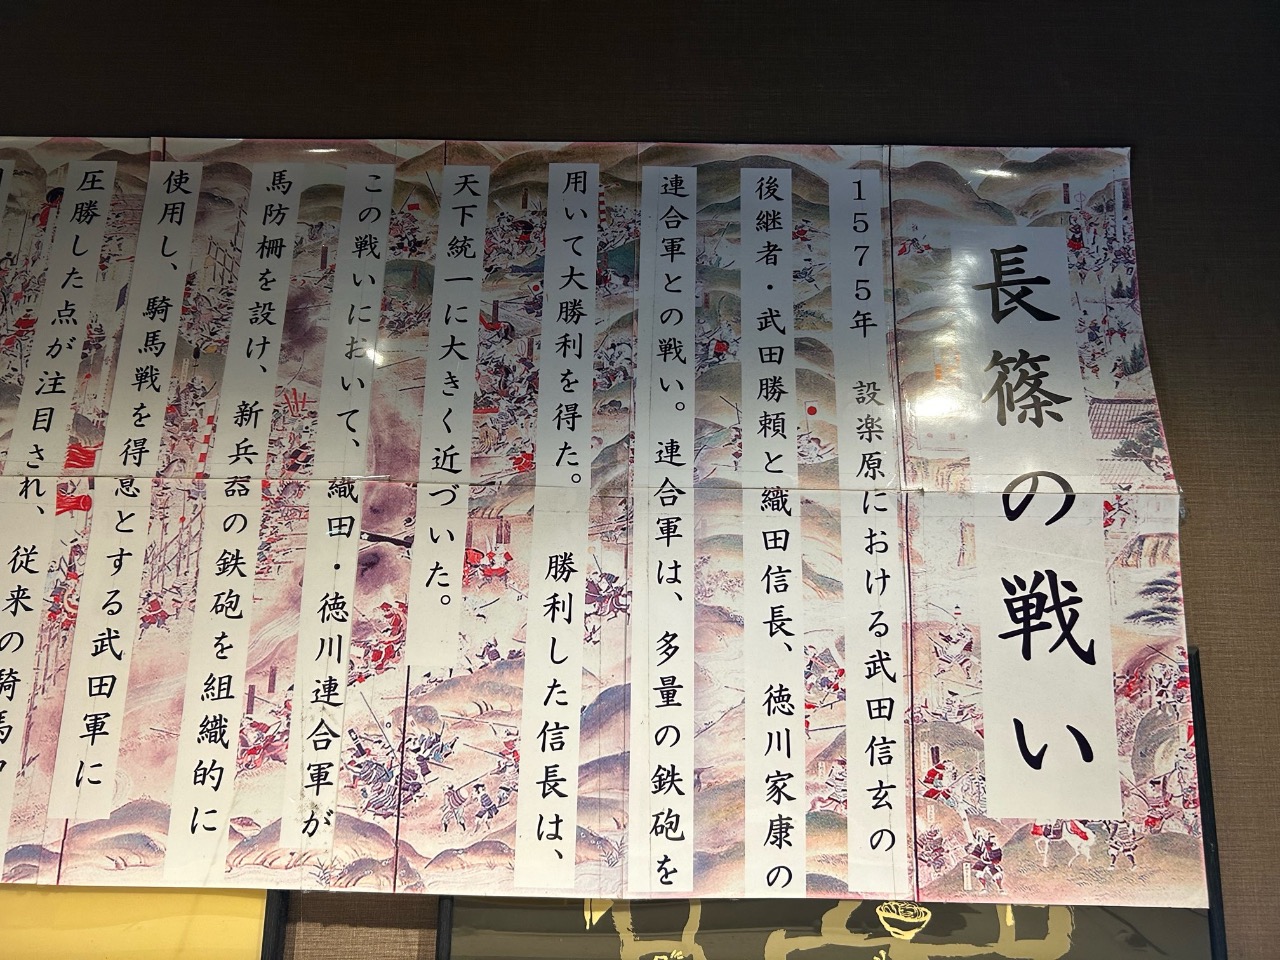 長篠の戦い
1575年 設楽原における武田信玄の
後継者・武田勝頼と織田信長、徳川家康の
連合軍との戦い。連合軍は、多量の鉄砲を
用いて大勝利を得た。 勝利した信長は、
天下統一に大きく近づいた。
この戦いにおいて、織田・徳川連合軍が
馬防柵を設け、新兵器の鉄砲を組織的に
使用し、騎馬戦を得意とする武田軍に
圧勝した点が注目され、従来の騎馬